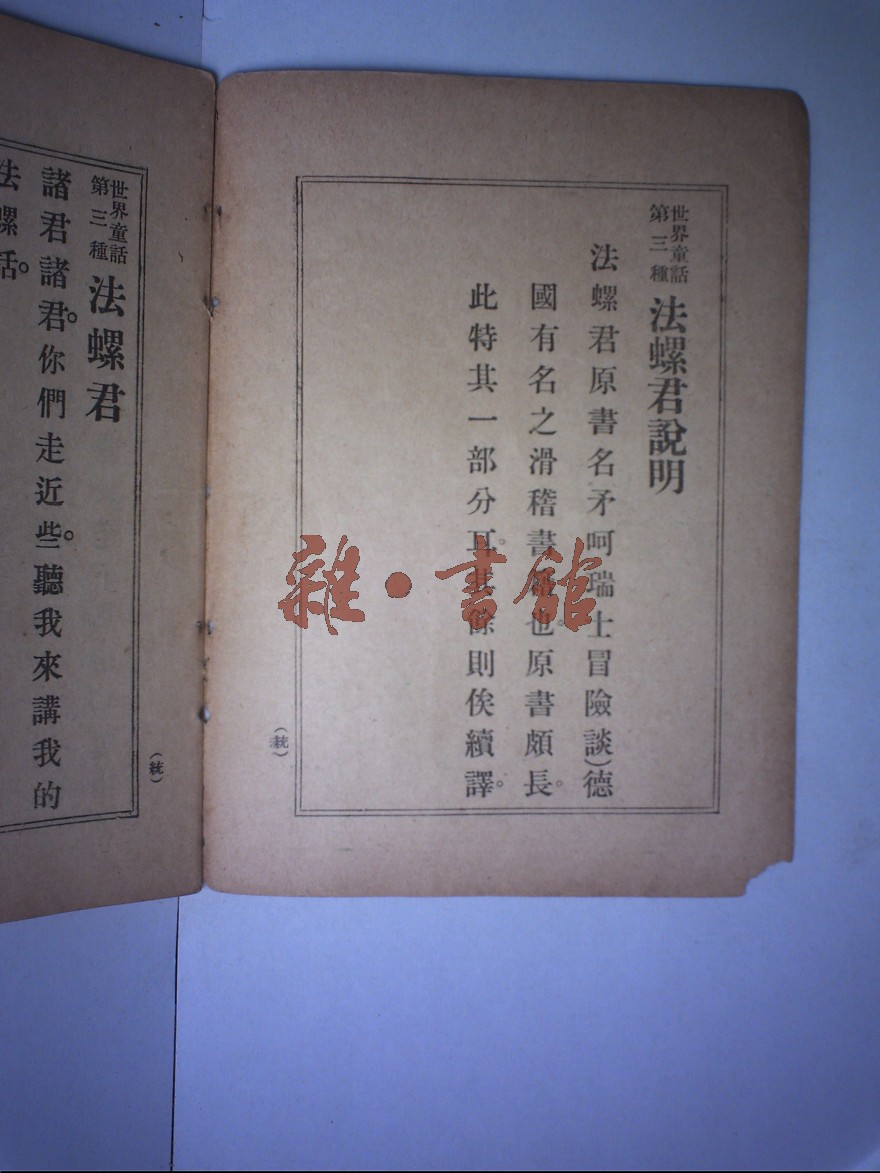 世界童話
第三種
法螺君說明
法螺君原書名矛呵瑞士冒險談)德
國有名之滑稽書 也。原書頗長。
此特其一部分耳。其餘則俟續譯。
(統)
世界童話
第三種
法螺君
諸君諸君。你們走近些。聽我來講我的
法螺話。
(統)
雜·書館